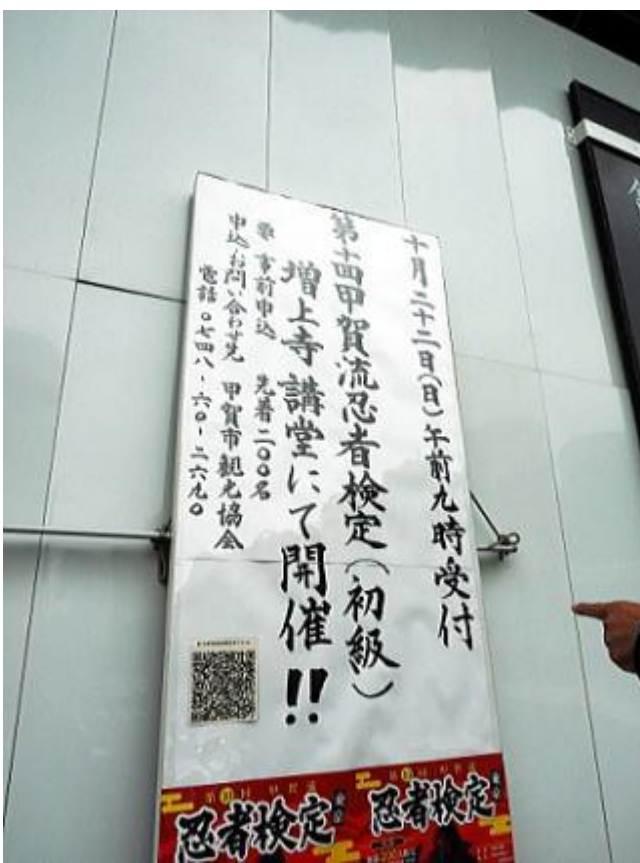 十月二十二日(日)午前九時受付
第十四甲賀流忍者検定(初級)
増上寺講堂にて開催!!
要事前申込 先着二〇〇名
申込・お問い合わせ先 甲賀市観光協会
電話〇七四八-六〇-二六九〇
忍者検定
忍者検定